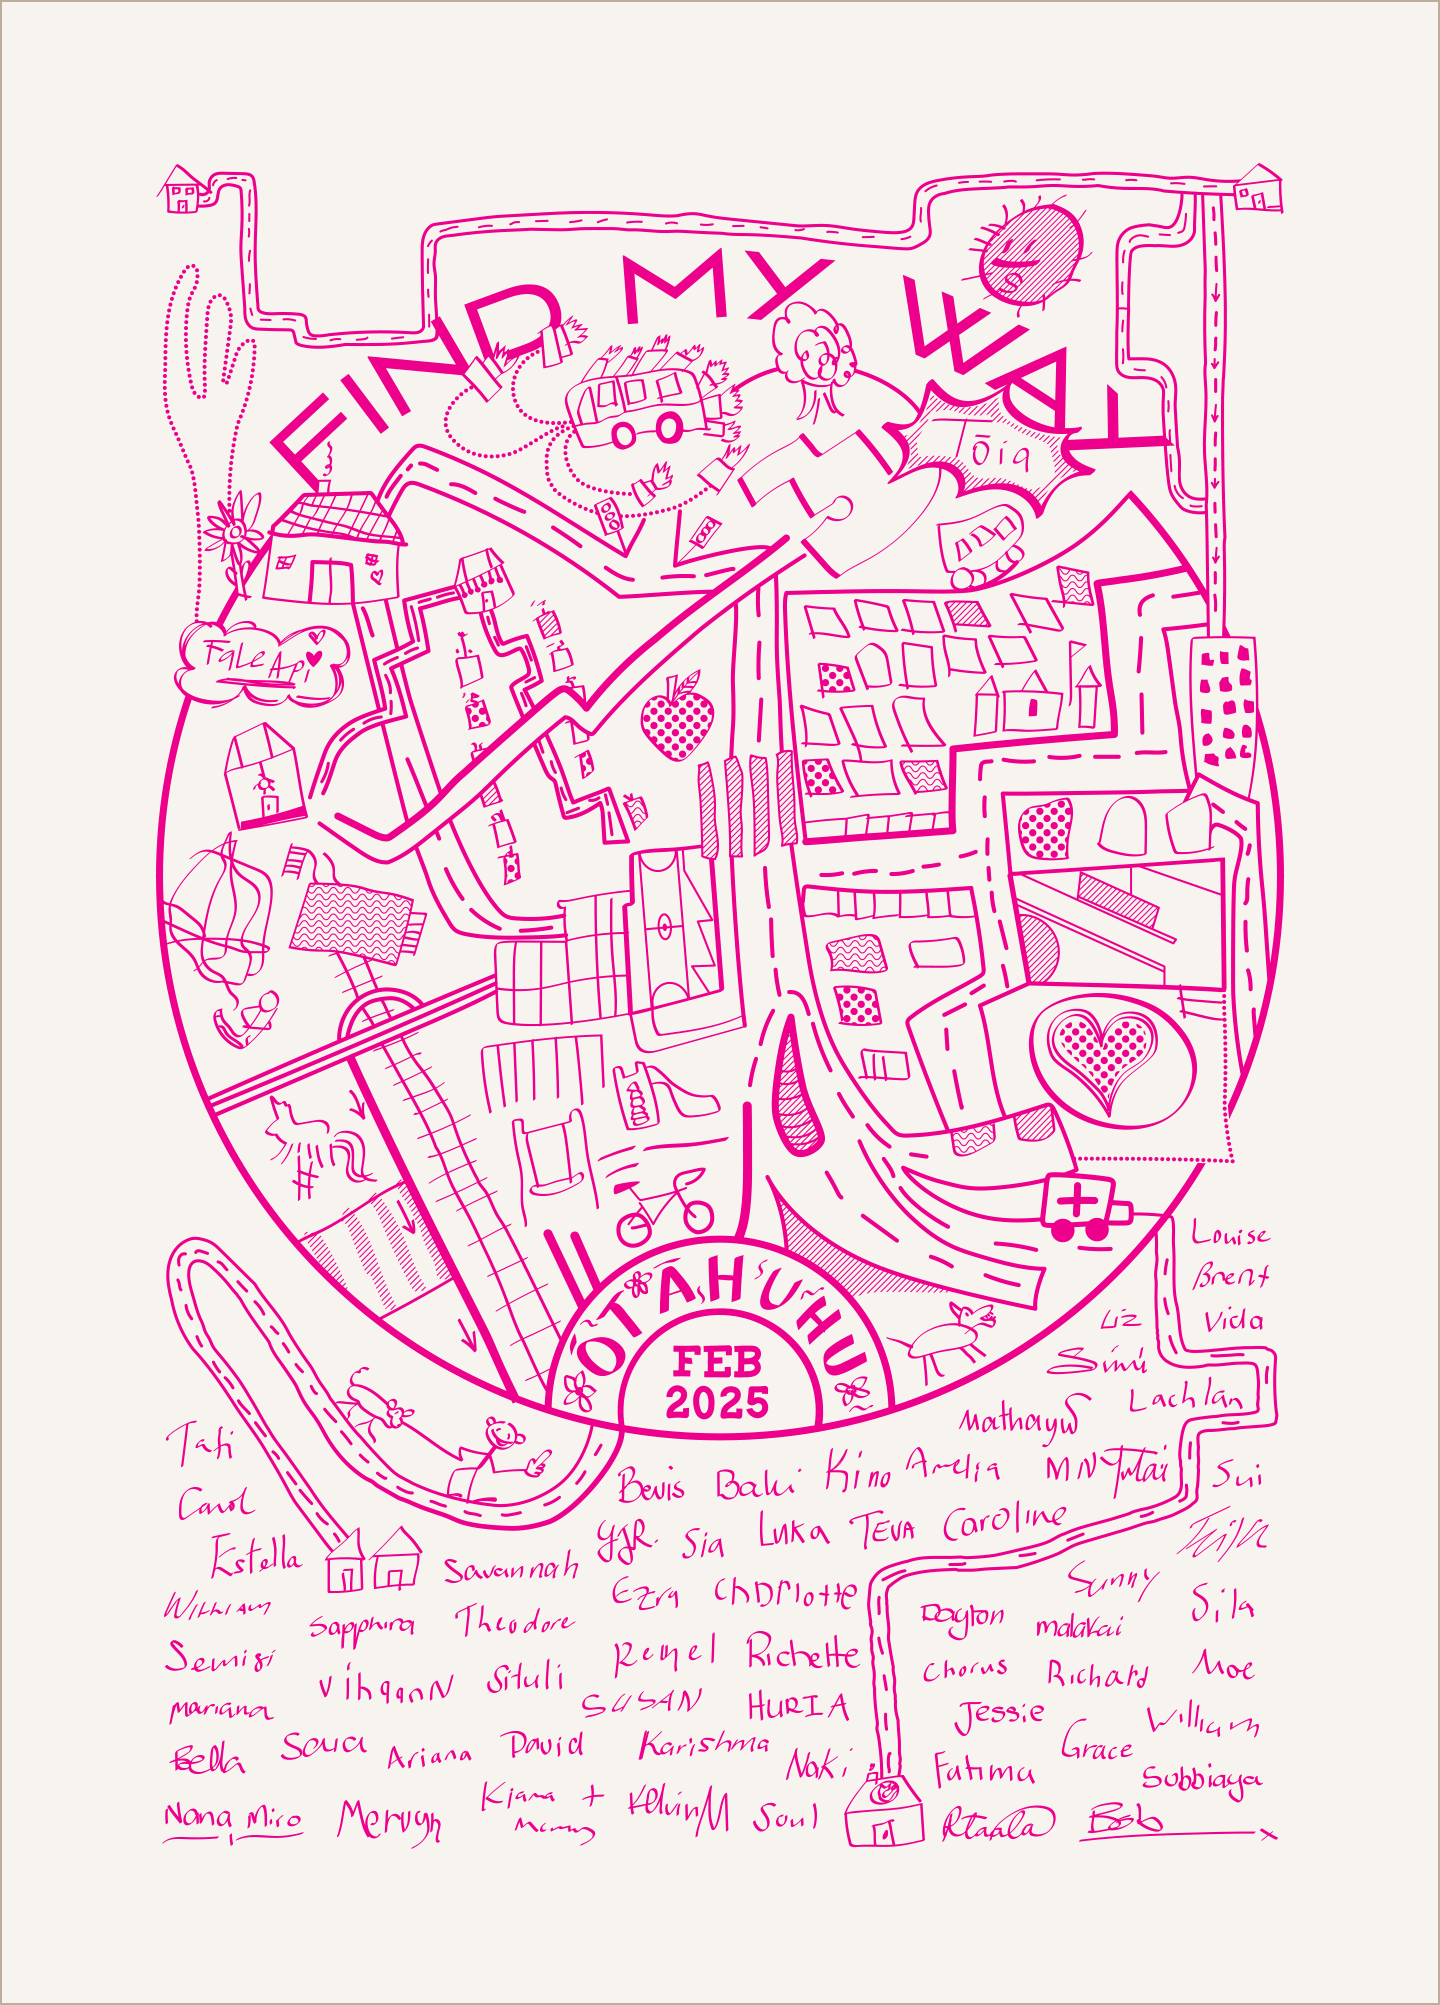 FIND MY WAY
Tōia
S
Fale Api
ŌTAHUHU
FEB
2025
Louise
Brent
Liz Vida
Simú
Lachlan
Mathayus
Tafi
Bevis Baki Kino Amelia
Sui
Carol
Y.J.R. Sia Luka TEVA Caroline
Estella Savannah
William Ezra Charlotte Sunny Sila
Sapphira Theodore Dayton malakai
Semisi Remel Richette Chorus Richard Moe
Vihaan Situli
mariana SUSAN HURIA Jessie William
Bella Ariana David Karishma Grace
Naki Fatima Subbiaya
Nana Miro Kiana + Kelvin M Soul Rtaala Bob